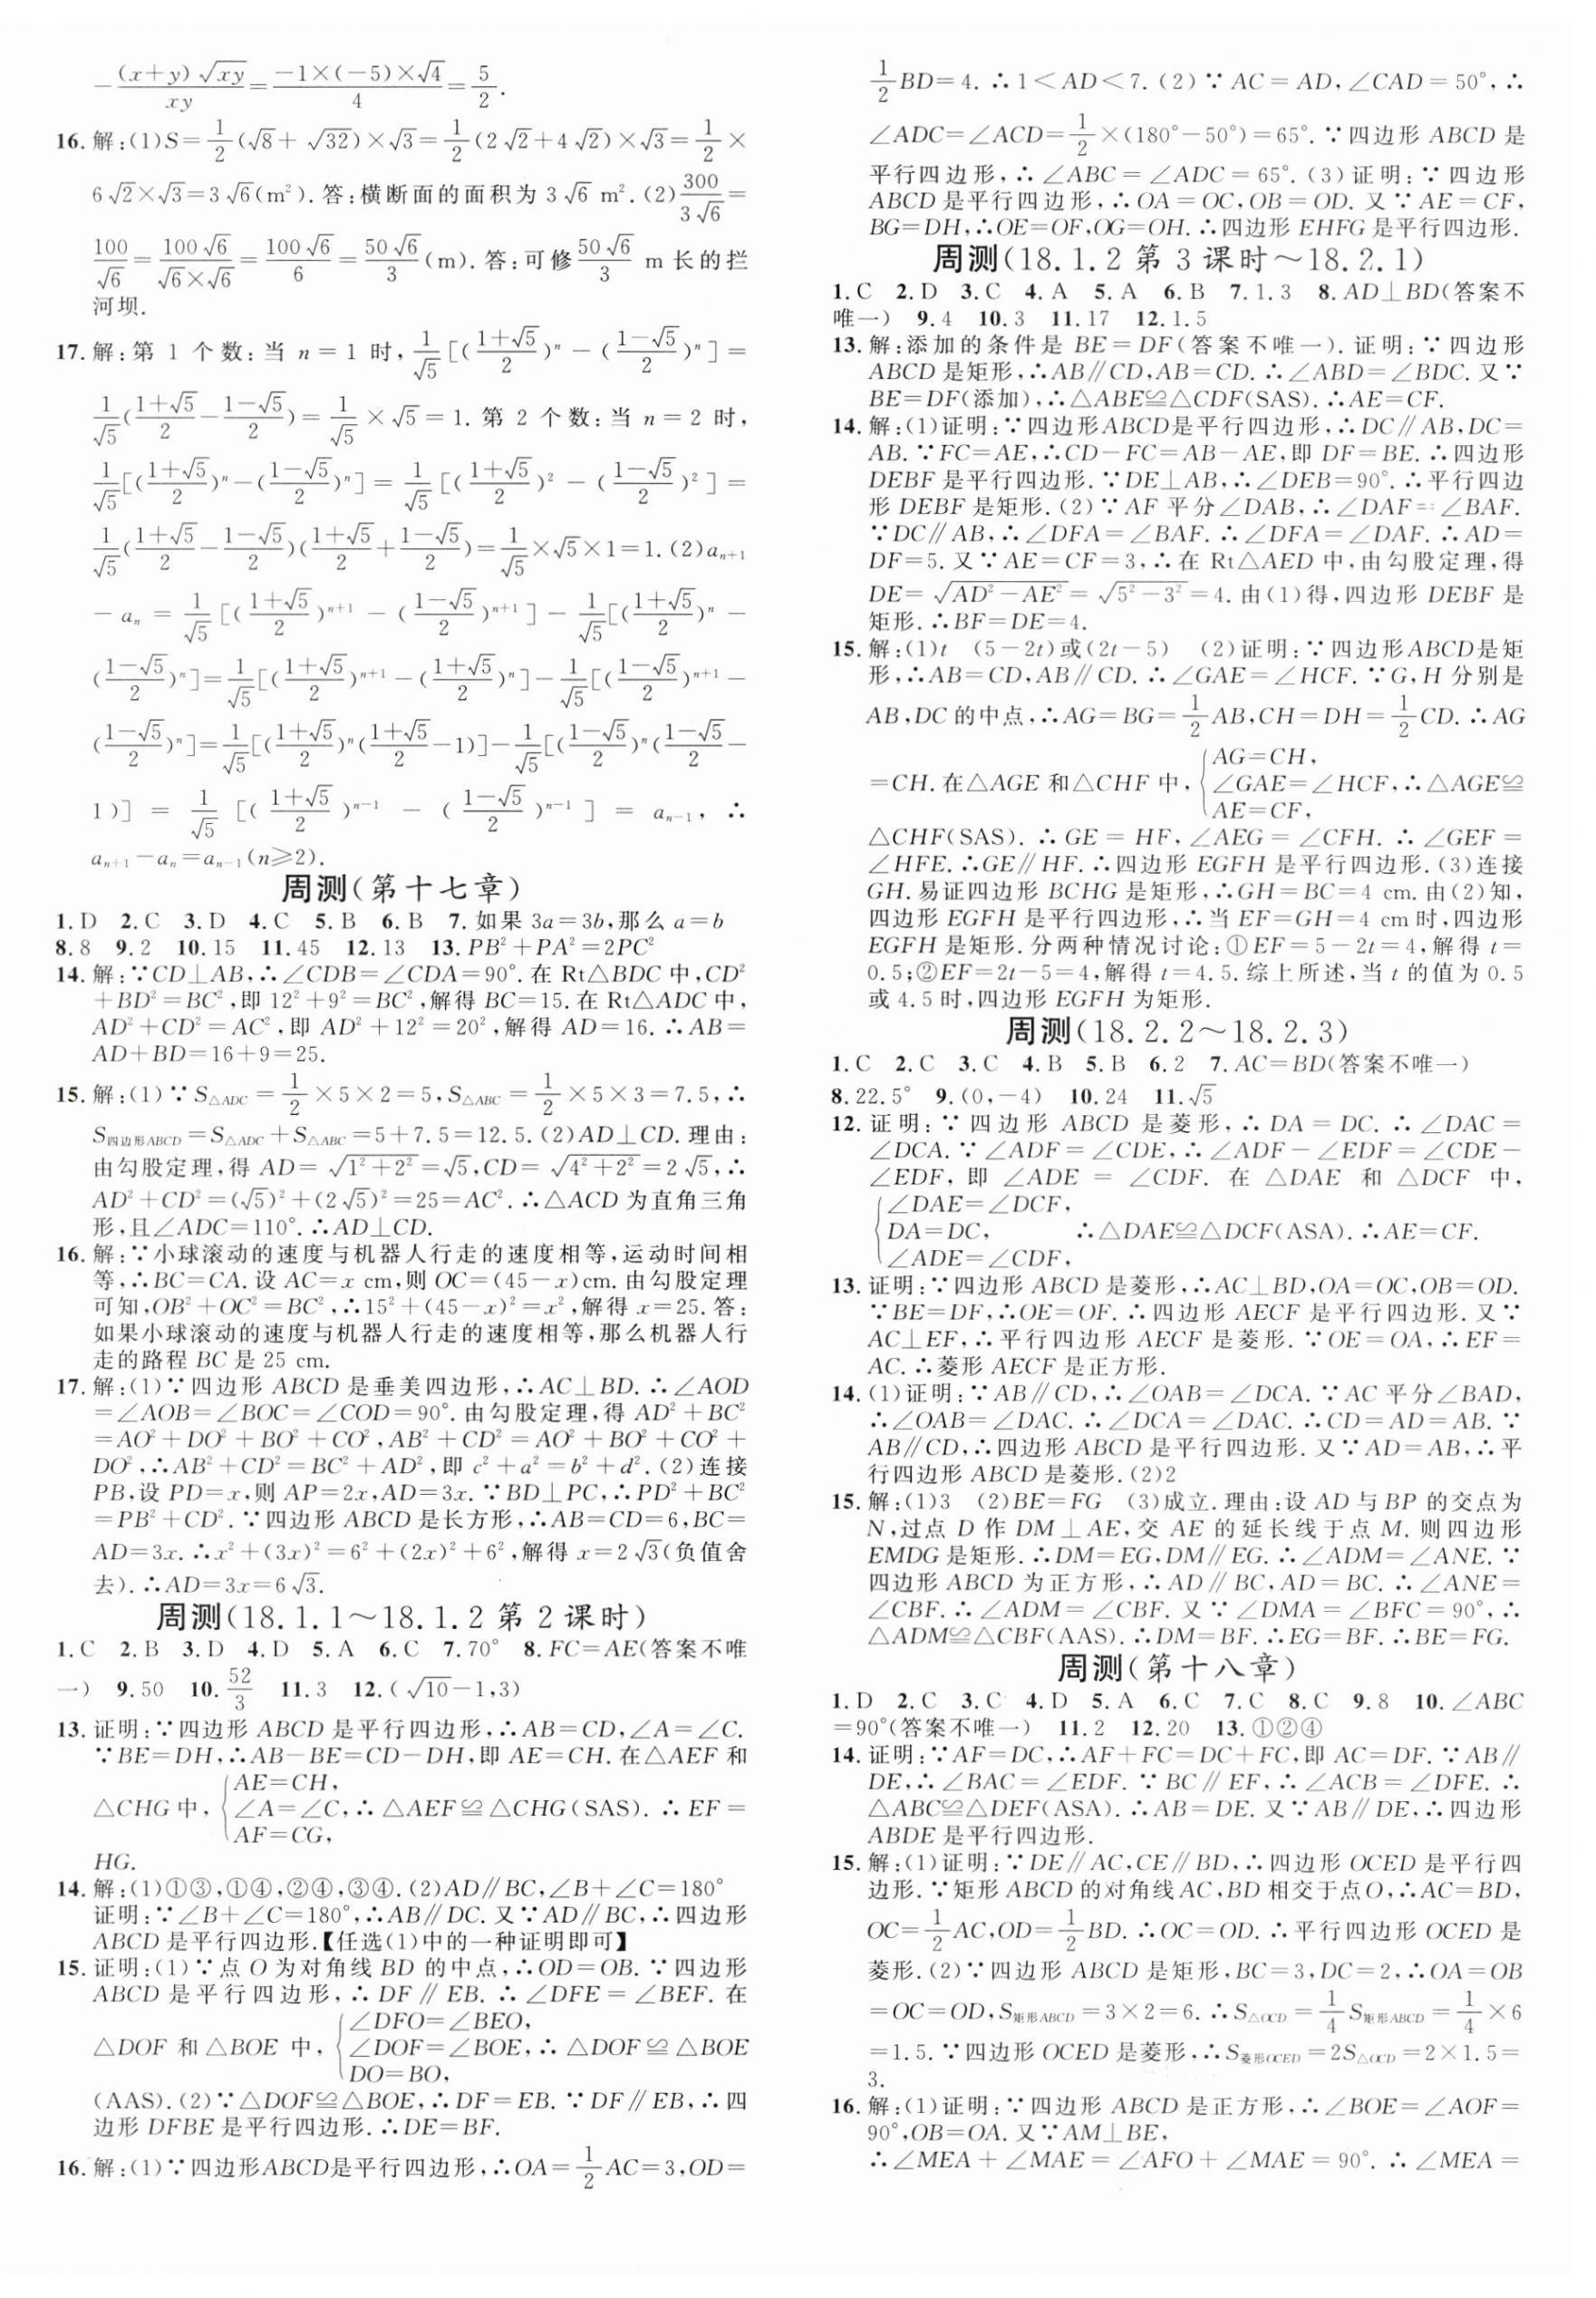 -(x+y)√xy/xy=-1×(-5)×√4/4=5/2.
16.解:(1)S=1/2(√8+√32)×√3=1/2(2√2+4√2)×√3=1/2×
6√2×√3=3√6(m²).答:横断面的面积为3√6 m².(2)300/3√6=
100/√6=100√6/√6×√6=100√6/6=50√6/3(m).答:可修50√6/3 m长的拦
河坝.
17.解:第1个数:当n=1时,1/√5[(1+√5/2)ⁿ-(1-√5/2)ⁿ]=
1/√5(1+√5/2-1-√5/2)=1/√5×√5=1.第2个数:当n=2时,
1/√5[(1+√5/2)ⁿ-(1-√5/2)ⁿ]=1/√5[(1+√5/2)²-(1-√5/2)²]=
1/√5(1+√5/2-1-√5/2)(1+√5/2+1-√5/2)=1/√5×√5×1=1.(2)aₙ₊₁
-aₙ=1/√5[(1+√5/2)ⁿ⁺¹-(1-√5/2)ⁿ⁺¹]-1/√5[(1+√5/2)ⁿ-
(1-√5/2)ⁿ]=1/√5[(1+√5/2)ⁿ⁺¹-(1+√5/2)ⁿ]-1/√5[(1-√5/2)ⁿ⁺¹-
(1-√5/2)ⁿ]=1/√5[(1+√5/2)ⁿ(1+√5/2-1)]-1/√5[(1-√5/2)ⁿ(1-√5/2-
1)]=1/√5[(1+√5/2)ⁿ⁻¹-(1-√5/2)ⁿ⁻¹]=aₙ₋₁,∴
aₙ₊₁-aₙ=aₙ₋₁(n≥2).
周测(第十七章)
1.D 2.C 3.D 4.C 5.B 6.B 7.如果3a=3b,那么a=b
8.8 9.2 10.15 11.45 12.13 13.PB²+PA²=2PC²
14.解:∵CD⊥AB,∴∠CDB=∠CDA=90°.在Rt△BDC中,CD²
+BD²=BC²,即12²+9²=BC²,解得BC=15.在Rt△ADC中,
AD²+CD²=AC²,即AD²+12²=20²,解得AD=16.∴AB=
AD+BD=16+9=25.
15.解:(1)∵S△ADC=1/2×5×2=5,S△ABC=1/2×5×3=7.5,∴
S四边形ABCD=S△ADC+S△ABC=5+7.5=12.5.(2)AD⊥CD.理由:
由勾股定理,得AD=√1²+2²=√5,CD=√4²+2²=2√5,∴
AD²+CD²=(√5)²+(2√5)²=25=AC².∴△ACD为直角三角
形,且∠ADC=110°.∴AD⊥CD.
16.解:∵小球滚动的速度与机器人行走的速度相等,运动时间相
等,∴BC=CA.设AC=x cm,则OC=(45-x)cm.由勾股定理
可知,OB²+OC²=BC²,∴15²+(45-x)²=x²,解得x=25.答:
如果小球滚动的速度与机器人行走的速度相等,那么机器人行
走的路程BC是25 cm.
17.解:(1)∵四边形ABCD是垂美四边形,∴AC⊥BD.∴∠AOD
=∠AOB=∠BOC=∠COD=90°.由勾股定理,得AD²+BC²
=AO²+DO²+BO²+CO²,AB²+CD²=AO²+BO²+CO²+
DO²,∴AB²+CD²=BC²+AD²,即c²+a²=b²+d².(2)连接
PB,设PD=x,则AP=2x,AD=3x.∵BD⊥PC,∴PD²+BC²
=PB²+CD².∵四边形ABCD是长方形,∴AB=CD=6,BC=
AD=3x.∴x²+(3x)²=6²+(2x)²+6²,解得x=2√3(负值舍
去).∴AD=3x=6√3.
周测(18.1.1～18.1.2第2课时)
1.C 2.B 3.D 4.D 5.A 6.C 7.70° 8.FC=AE(答案不唯
一) 9.50 10.52/3 11.3 12.(√10-1,3)
13.证明:∵四边形ABCD是平行四边形,∴AB=CD,∠A=∠C.
∵BE=DH,∴AB-BE=CD-DH,即AE=CH.在△AEF和
AE=CH,
△CHG中,{∠A=∠C,∴△AEF≌△CHG(SAS).∴EF=
AF=CG,
HG.
14.解:(1)①③,①④,②④,③④.(2)AD∥BC,∠B+∠C=180°
证明:∵∠B+∠C=180°,∴AB∥DC.又∵AD∥BC,∴四边形
ABCD是平行四边形.【任选(1)中的一种证明即可】
15.证明:(1)∵点O为对角线BD的中点,∴OD=OB.∵四边形
ABCD是平行四边形,∴DF∥EB.∴∠DFE=∠BEF.在
∠DFO=∠BEO,
△DOF和△BOE中,{∠DOF=∠BOE,∴△DOF≌△BOE
DO=BO,
(AAS).(2)∵△DOF≌△BOE,∴DF=EB.∵DF∥EB,∴四
边形DFBE是平行四边形.∴DE=BF.
16.解:(1)∵四边形ABCD是平行四边形,∴OA=1/2AC=3,OD=
1/2BD=4.∴1<AD<7.(2)∵AC=AD,∠CAD=50°,∴
∠ADC=∠ACD=1/2×(180°-50°)=65°.∵四边形ABCD是
平行四边形,∴∠ABC=∠ADC=65°.(3)证明:∵四边形
ABCD是平行四边形,∴OA=OC,OB=OD.又∵AE=CF,
BG=DH,∴OE=OF,OG=OH.∴四边形EHFG是平行四边形.
周测(18.1.2第3课时～18.2.1)
1.C 2.D 3.C 4.A 5.A 6.B 7.1.3 8.AD⊥BD(答案不
唯一) 9.4 10.3 11.17 12.1.5
13.解:添加的条件是BE=DF(答案不唯一).证明:∵四边形
ABCD是矩形,∴AB∥CD,AB=CD.∴∠ABD=∠BDC.又∵
BE=DF(添加),∴△ABE≌△CDF(SAS).∴AE=CF.
14.解:(1)证明:∵四边形ABCD是平行四边形,∴DC∥AB,DC=
AB.∵FC=AE,∴CD-FC=AB-AE,即DF=BE.∴四边形
DEBF是平行四边形.∵DE⊥AB,∴∠DEB=90°.∴平行四边
形DEBF是矩形.(2)∵AF平分∠DAB,∴∠DAF=∠BAF.
∵DC∥AB,∴∠DFA=∠BAF.∴∠DFA=∠DAF.∴AD=
DF=5.又∵AE=CF=3,∴在Rt△AED中,由勾股定理,得
DE=√AD²-AE²=√5²-3²=4.由(1)得,四边形DEBF是
矩形.∴BF=DE=4.
15.解:(1)t (5-2t)或(2t-5) (2)证明:∵四边形ABCD是矩
形,∴AB=CD,AB∥CD.∴∠GAE=∠HCF.∵G,H分别是
AB,DC的中点,∴AG=BG=1/2AB,CH=DH=1/2CD.∴AG
AG=CH,
=CH.在△AGE和△CHF中,{∠GAE=∠HCF,∴△AGE≌
AE=CF,
△CHF(SAS).∴GE=HF,∠AEG=∠CFH.∴∠GEF=
∠HFE.∴GE∥HF.∴四边形EGFH是平行四边形.(3)连接
GH.易证四边形BCHG是矩形,∴GH=BC=4 cm.由(2)知,
四边形EGFH是平行四边形,∴当EF=GH=4 cm时,四边形
EGFH是矩形.分两种情况讨论:①EF=5-2t=4,解得t=
0.5;②EF=2t-5=4,解得t=4.5.综上所述,当t的值为0.5
或4.5时,四边形EGFH为矩形.
周测(18.2.2～18.2.3)
1.C 2.C 3.C 4.B 5.B 6.2 7.AC=BD(答案不唯一)
8.22.5° 9.(0,-4) 10.24 11.√5
12.证明:∵四边形ABCD是菱形,∴DA=DC.∴∠DAC=
∠DCA.∵∠ADF=∠CDE,∴∠ADF-∠EDF=∠CDE-
∠EDF,即∠ADE=∠CDF.在△DAE和△DCF中,
∠DAE=∠DCF,
{DA=DC, ∴△DAE≌△DCF(ASA).∴AE=CF.
∠ADE=∠CDF,
13.证明:∵四边形ABCD是菱形,∴AC⊥BD,OA=OC,OB=OD.
∵BE=DF,∴OE=OF.∴四边形AECF是平行四边形.又∵
AC⊥EF,∴平行四边形AECF是菱形.∵OE=OA,∴EF=
AC.∴菱形AECF是正方形.
14.(1)证明:∵AB∥CD,∴∠OAB=∠DCA.∵AC平分∠BAD,
∴∠OAB=∠DAC.∴∠DCA=∠DAC.∴CD=AD=AB.∵
AB∥CD,∴四边形ABCD是平行四边形.又∵AD=AB,∴平
行四边形ABCD是菱形.(2)2
15.解:(1)3 (2)BE=FG (3)成立.理由:设AD与BP的交点为
N,过点D作DM⊥AE,交AE的延长线于点M.则四边形
EMDG是矩形.∴DM=EG,DM∥EG.∴∠ADM=∠ANE.∵
四边形ABCD为正方形,∴AD∥BC,AD=BC.∴∠ANE=
∠CBF.∴∠ADM=∠CBF.又∵∠DMA=∠BFC=90°,∴
△ADM≌△CBF(AAS).∴DM=BF.∴EG=BF.∴BE=FG.
周测(第十八章)
1.D 2.C 3.C 4.D 5.A 6.C 7.C 8.C 9.8 10.∠ABC
=90°(答案不唯一) 11.2 12.20 13.①②④
14.证明:∵AF=DC,∴AF+FC=DC+FC,即AC=DF.∵AB∥
DE,∴∠BAC=∠EDF.∵BC∥EF,∴∠ACB=∠DFE.∴
△ABC≌△DEF(ASA).∴AB=DE.又∵AB∥DE,∴四边形
ABDE是平行四边形.
15.解:(1)证明:∵DE∥AC,CE∥BD,∴四边形OCED是平行四
边形.∵矩形ABCD的对角线AC,BD相交于点O,∴AC=BD,
OC=1/2AC,OD=1/2BD.∴OC=OD.∴平行四边形OCED是
菱形.(2)∵四边形ABCD是矩形,BC=3,DC=2,∴OA=OB
=OC=OD,S矩形ABCD=3×2=6.∴S△OCD=1/4S矩形ABCD=1/4×6
=1.5.∵四边形OCED是菱形,∴S菱形OCED=2S△OCD=2×1.5=
3.
16.解:(1)证明:∵四边形ABCD是正方形,∴∠BOE=∠AOF=
90°,OB=OA.又∵AM⊥BE,
∴∠MEA+∠MAE=∠AFO+∠MAE=90°.∴∠MEA=